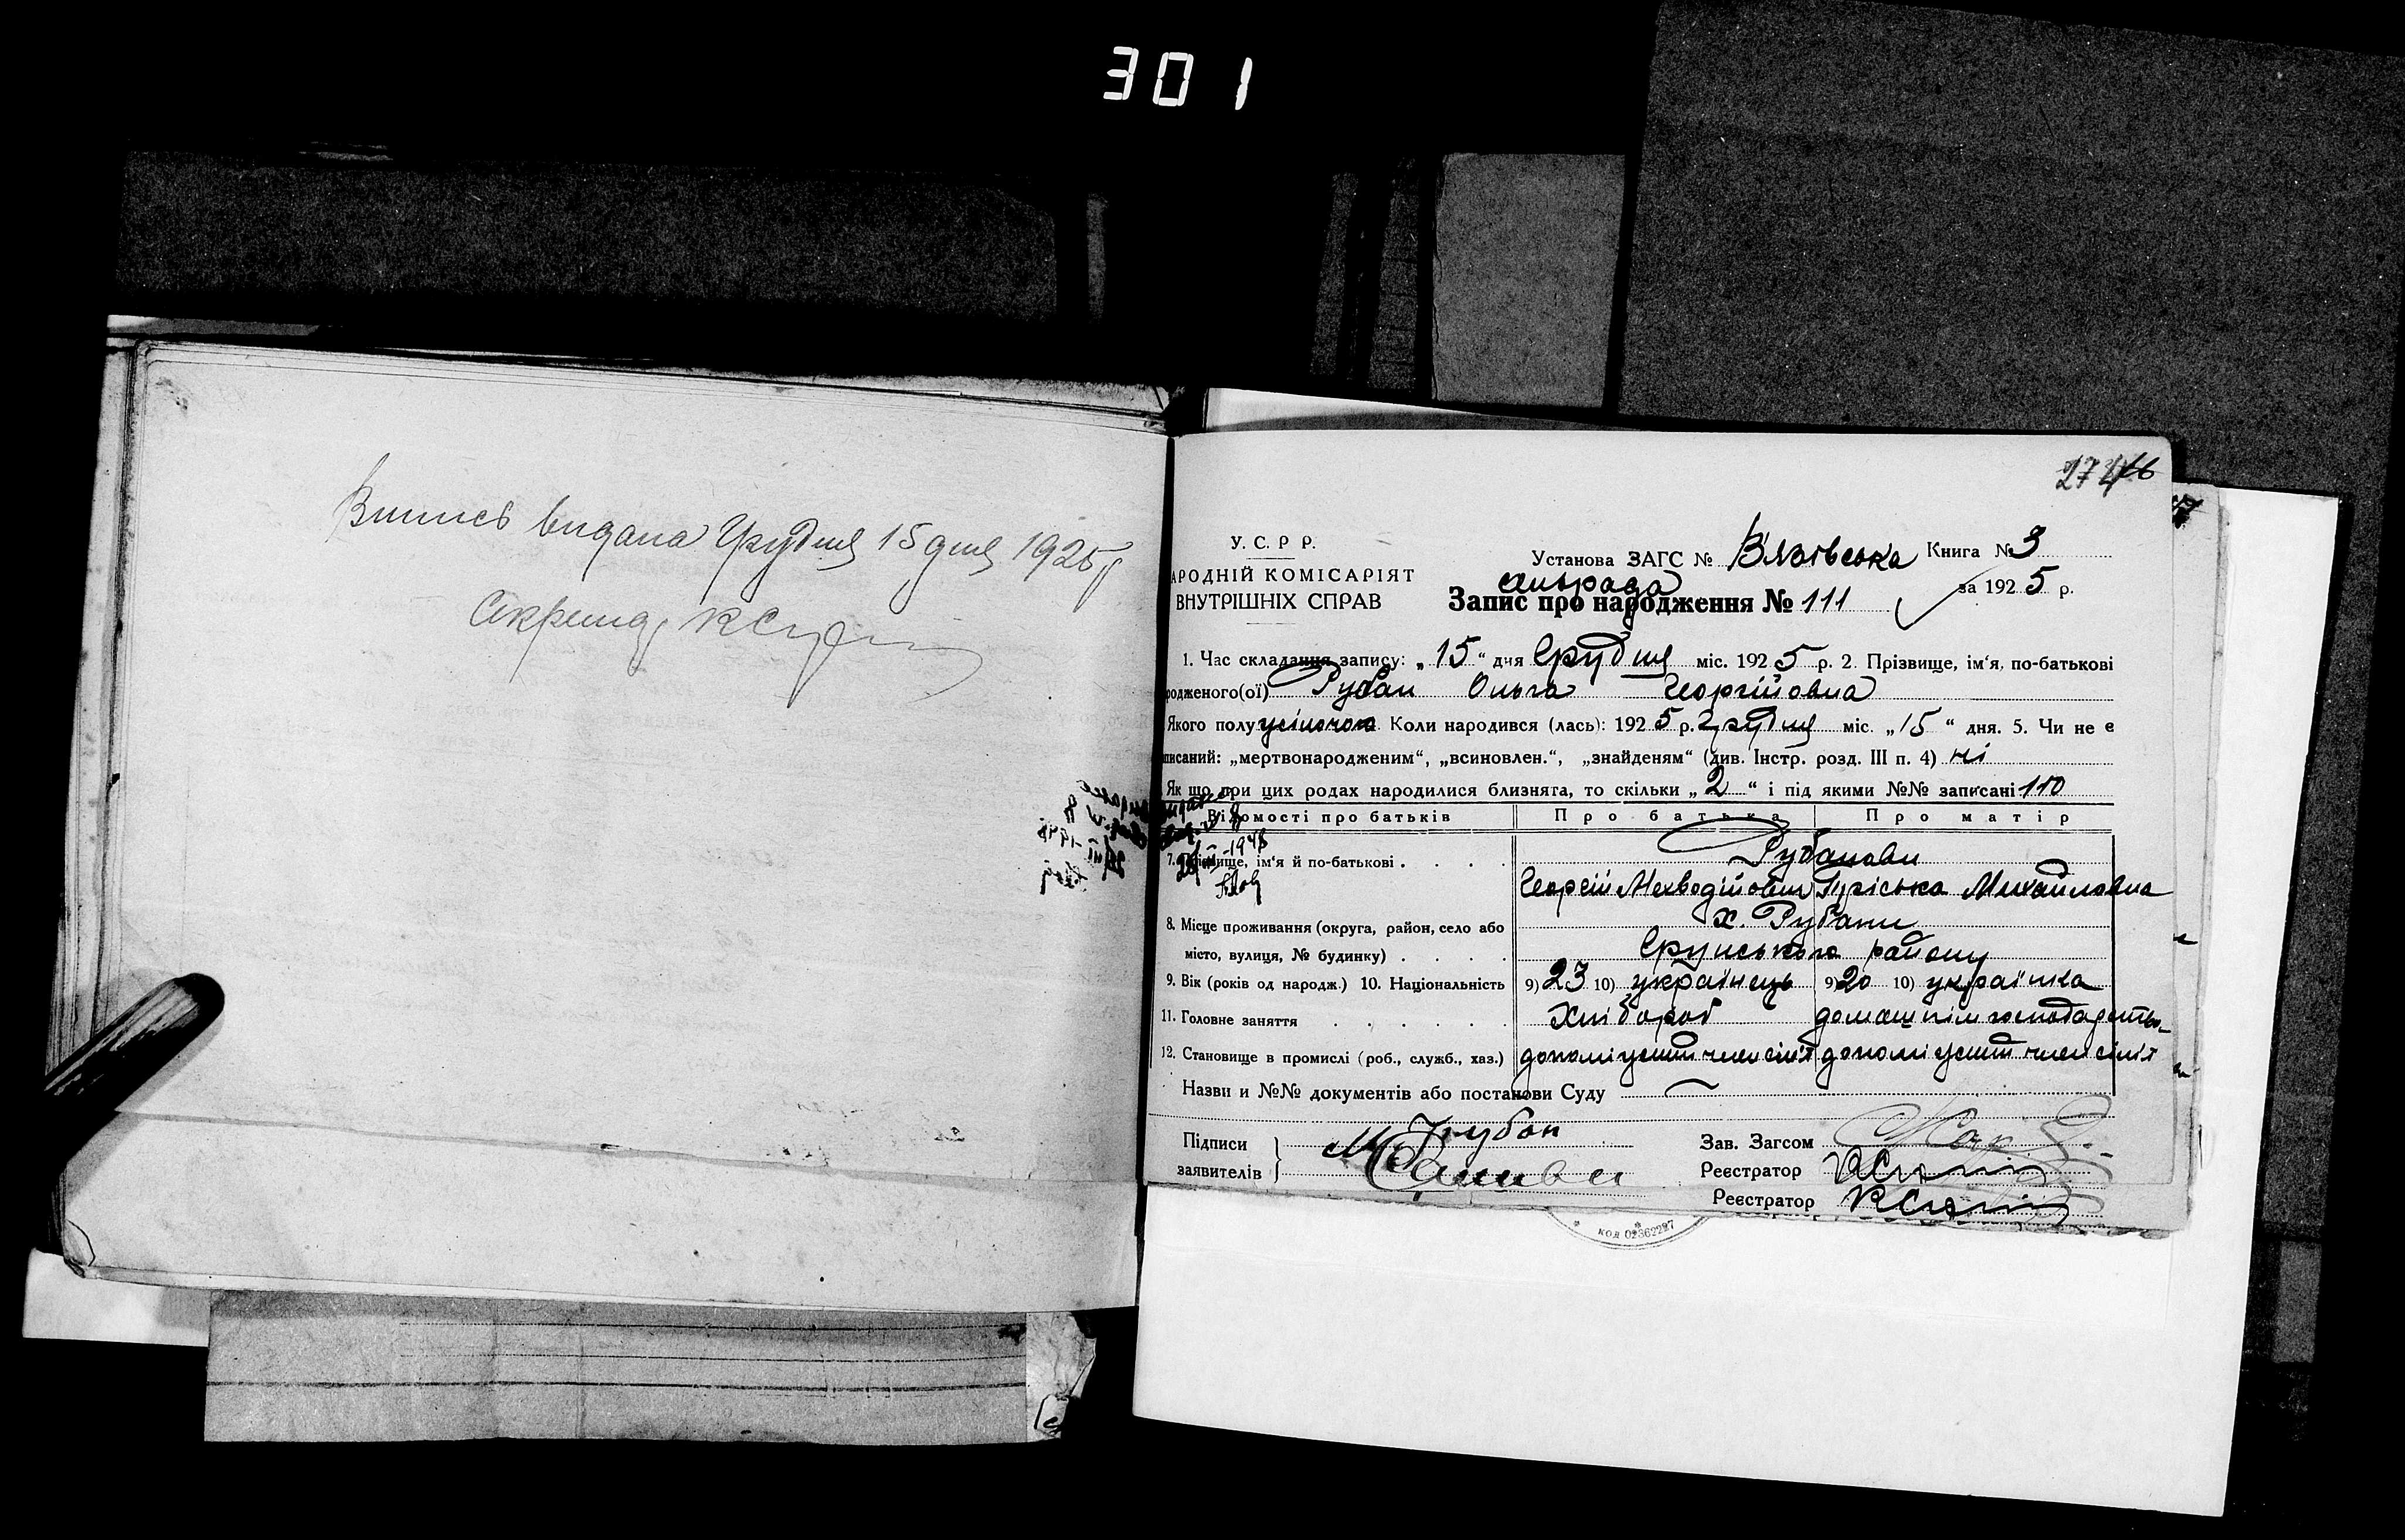 301
Випись видана Грудня 15 дня 1925 р
Секретар
274
У. С. Р. Р.
АРОДНІЙ КОМІСАРІЯТ
ВНУТРІШНІХ СПРАВ
Установа ЗАГС № В'язівська Книга № 3
сільрада
за 1925 р.
Запис про народження № 111
1. Час складання запису: „15“ дня Грудня міс. 1925 р. 2. Прізвище, ім'я, по-батькові
родженого(ої) Рубан Ольга Георгійовна
Якого полу жіночого Коли народився (лась): 1925 р. Грудня міс. „15“ дня. 5. Чи не є
писаний: „мертвонародженим“, „всиновлен.“, „знайденям“ (див. Інстр. розд. III п. 4) ні
Як що при цих родах народилися близняга, то скільки „2“ і під якими №№ записані 110
Відомості про батьків Про батька Про матір
7. Прізвище, ім'я й по-батькові . . . . Рубанови
Георгій Мехводійович Михайловна
8. Місце проживання (округа, район, село або х. Рубани
місто, вулиця, № будинку) . . . . Грунського району
9. Вік (років од народж.) 10. Національність 9) 23 10) українець 9) 20 10) українка
11. Головне заняття . . . . . . Хлібороб домашнім господарство
12. Становище в промислі (роб., служб., хаз.) допоміжний член сім'ї допоміжний член сім'ї
Назви и №№ документів або постанови Суду
Підписи
заявителів
М Рубан
Зав. Загсом
Реєстратор
Реєстратор
КОД 02362227